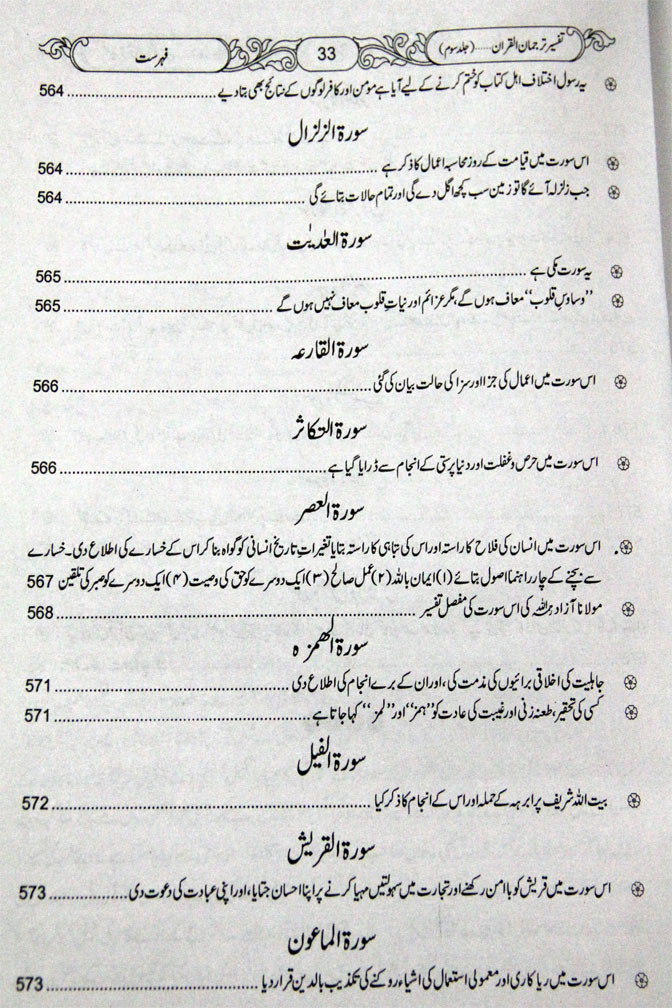 تفسیر ترجمان القرآن......(جلد سوم) 33 فہرست
یہ رسول اختلاف اہل کتاب کو ختم کرنے کے لیے آیا ہے مومن اور کافر لوگوں کے نتائج بھی بتا دیے 564
سورۃ الزلزال
اس سورت میں قیامت کے روز محاسبہ اعمال کا ذکر ہے 564
جب زلزلہ آئے گا تو زمین سب کچھ اگل دے گی اور تمام حالات بتائے گی 564
سورۃ العٰدیٰت
یہ سورت مکی ہے 565
"وساوس قلوب" معاف ہوں گے، مگر عزائم اور نیاتِ قلوب معاف نہیں ہوں گے 565
سورۃ القارعہ
اس سورت میں اعمال کی جزا اور سزا کی حالت بیان کی گئی 566
سورۃ التکاثر
اس سورت میں حرص و غفلت اور دنیا پرستی کے انجام سے ڈرایا گیا ہے 566
سورۃ العصر
اس سورت میں انسان کی فلاح کا راستہ اور اس کی تباہی کا راستہ بتایا تغیراتِ تاریخ انسانی کو گواہ بنا کر اس کے خسارے کی اطلاع دی۔ خسارے
سے بچنے کے چار راہنما اصول بتائے (۱) ایمان باللہ (۲) عمل صالح (۳) ایک دوسرے کو حق کی وصیت (۴) ایک دوسرے کو صبر کی تلقین 567
مولانا آزاد رحمہ اللہ کی اس سورت کی مفصل تفسیر 568
سورۃ الھمزہ
جاہلیت کی اخلاقی برائیوں کی مذمت کی، اور ان کے برے انجام کی اطلاع دی 571
کسی کی تحقیر، طعنہ زنی اور غیبت کی عادت کو "ہمز" اور "لمز" کہا جاتا ہے 571
سورۃ الفیل
بیت اللہ شریف پر ابرہہ کے حملہ اور اس کے انجام کا ذکر کیا 572
سورۃ القریش
اس سورت میں قریش کو باامن رکھنے اور تجارت میں سہولتیں مہیا کرنے پر اپنا احسان جتایا، اور اپنی عبادت کی دعوت دی 573
سورۃ الماعون
اس سورت میں ریا کاری اور معمولی استعمال کی اشیاء روکنے کی تکذیب بالدین قرار دیا 573